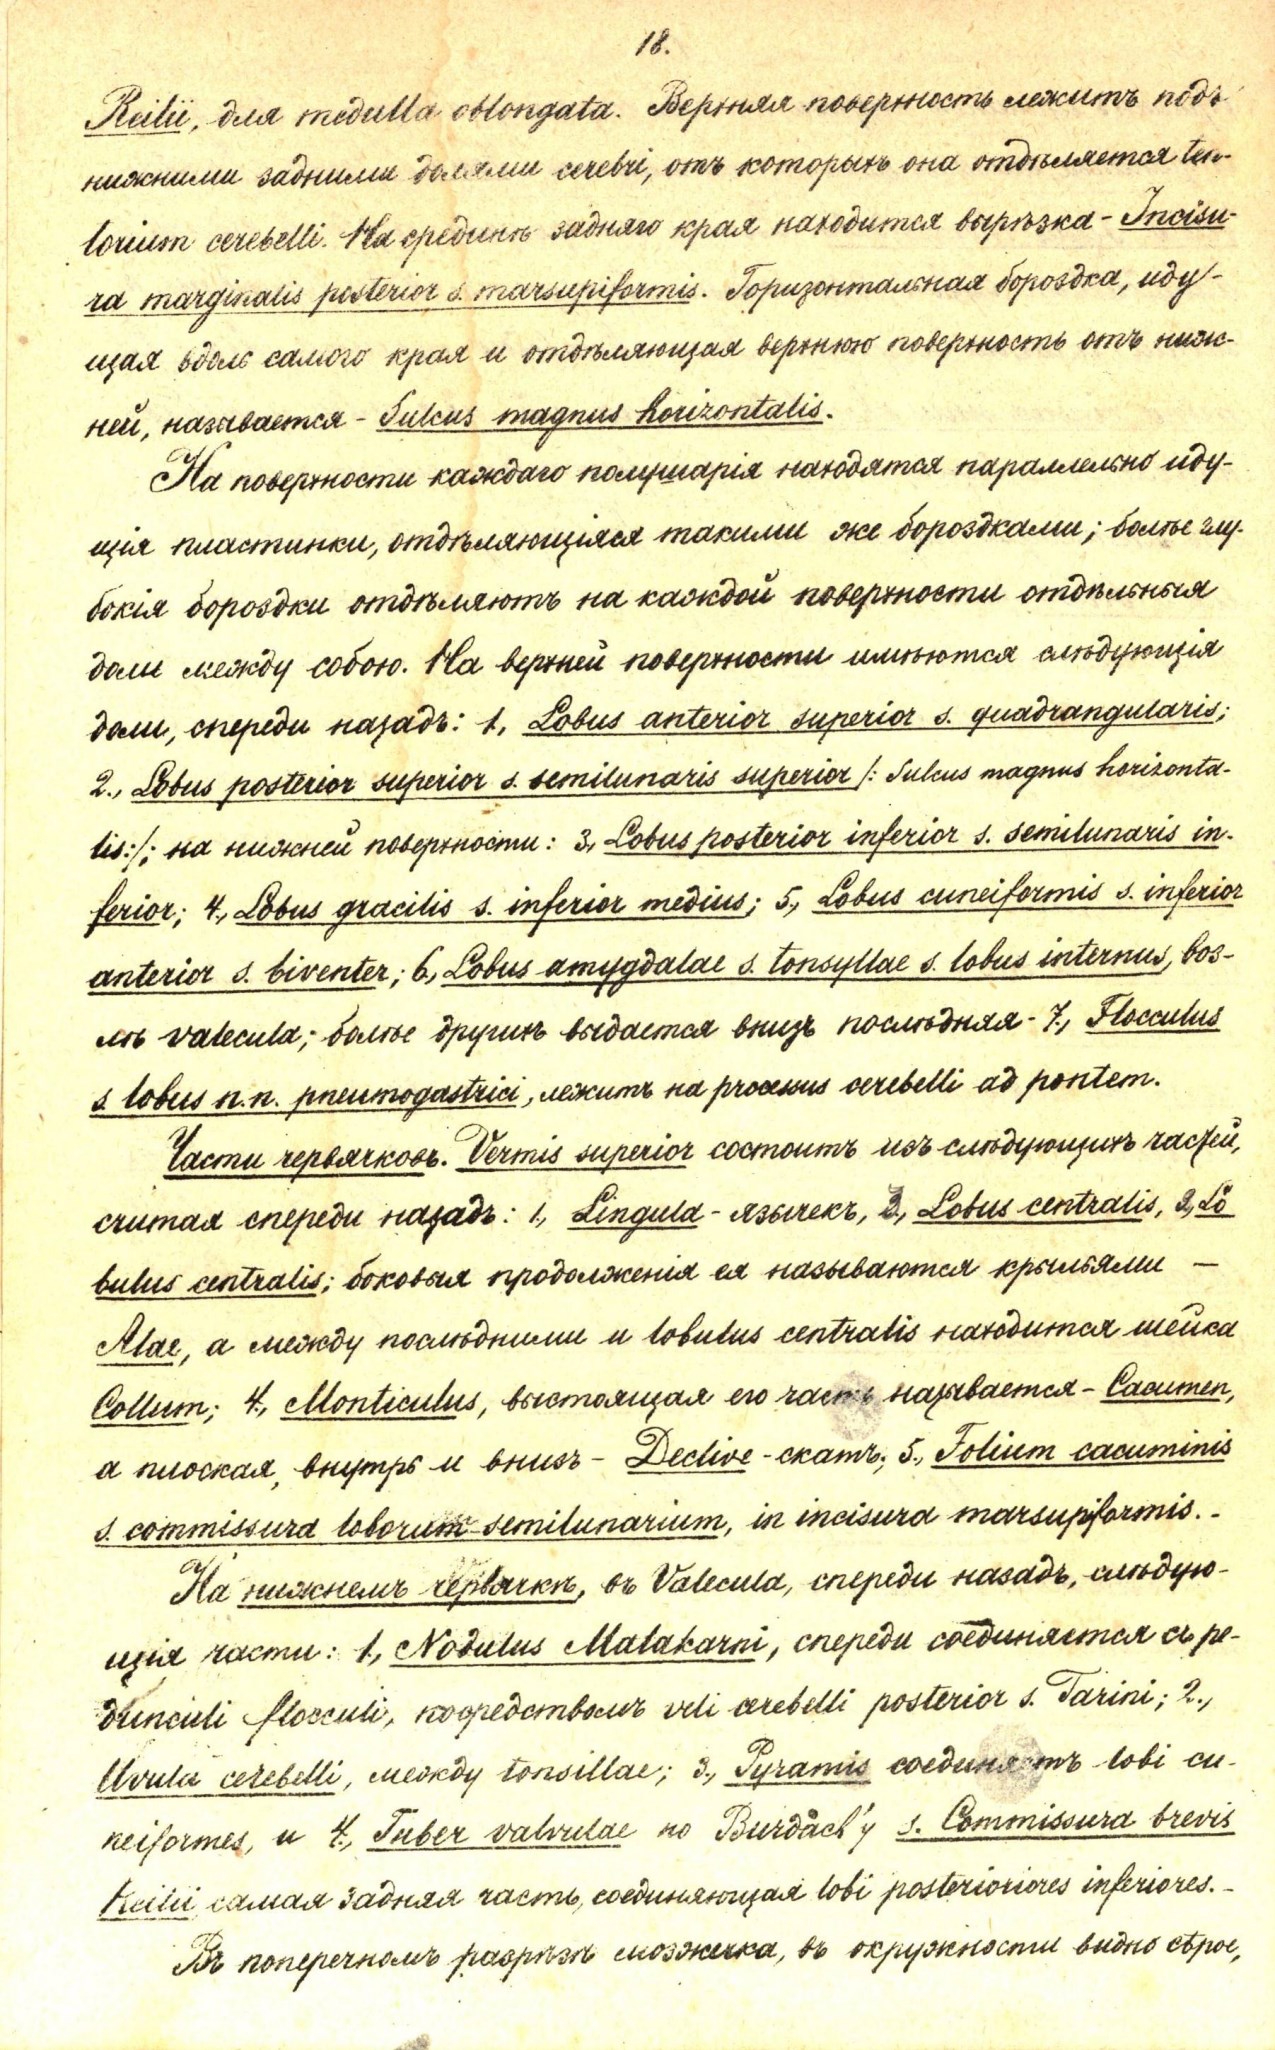 18.
Reilii, для medulla oblongata. Верхняя поверхность лежитъ подъ
нижними задними долями cerebri, отъ которыхъ она отдѣляется ten-
torium cerebelli. На срединѣ задняго края находится вырѣзка - Incisu-
ra marginalis posterior s. marsupiformis. Горизонтальная бороздка, иду-
щая вдоль самого края и отдѣляющая верхнюю поверхность отъ ниж-
ней, называется - Sulcus magnus horizontalis.
На поверхности каждаго полушарія находятся параллельно иду-
щія пластинки, отдѣляющіяся такими же бороздками; болѣе глу-
бокія бороздки отдѣляютъ на каждой поверхности отдѣльныя
доли между собою. На верхней поверхности имѣются слѣдующія
доли, спереди назадъ: 1, Lobus anterior superior s. quadrangularis;
2., Lobus posterior superior s. semilunaris superior /: Sulcus magnus horizonta-
lis:/; на нижней поверхности: 3., Lobus posterior inferior s. semilunaris in-
ferior; 4., Lobus gracilis s. inferior medius; 5., Lobus cuneiformis s. inferior
anterior s. biventer; 6., Lobus amygdalae s. tonsyllae s. lobus internus, воз-
лѣ valecula; болѣе другихъ выдается внизъ послѣдняя - 7., Flocculus
s. lobus n.n. pneumogastrici, лежитъ на processus cerebelli ad pontem.
Части червячковъ. Vermis superior состоитъ изъ слѣдующихъ частей,
считая спереди назадъ: 1., Lingula - язычекъ, 2., Lobus centralis, 2, Lo
bulus centralis; боковыя продолженія ея называются крыльями -
Alae, а между послѣдними и lobulus centralis находится шейка
Collum; 4., Monticulus, выстоящая его часть называется - Cacumen,
а плоская, внутрь и внизъ - Declive - скатъ; 5., Folium cacuminis
s. commissura loborum semilunarium, in incisura marsupiformis. -
На нижнемъ червячкѣ, въ Valecula, спереди назадъ, слѣдую-
щія части: 1., Nodulus Malakarni, спереди соединяется съ pe-
dunculi flocculi, посредствомъ veli cerebelli posterior s. Tarini; 2.,
Uvula cerebelli, между tonsillae; 3., Pyramis соединяетъ lobi cu-
neiformes, и 4., Tuber valvulae по Burdach'у s. Commissura brevis
Reilii самая задняя часть, соединяющая lobi posterioriores inferiores. -
Въ поперечномъ разрѣзѣ мозжечка, въ окружности видно сѣрое,